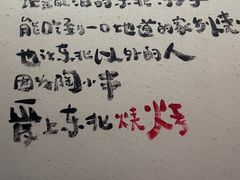 能吃到一口地道的家乡烧
也让东北以外的人
因为陶小串
爱上东北烧烤